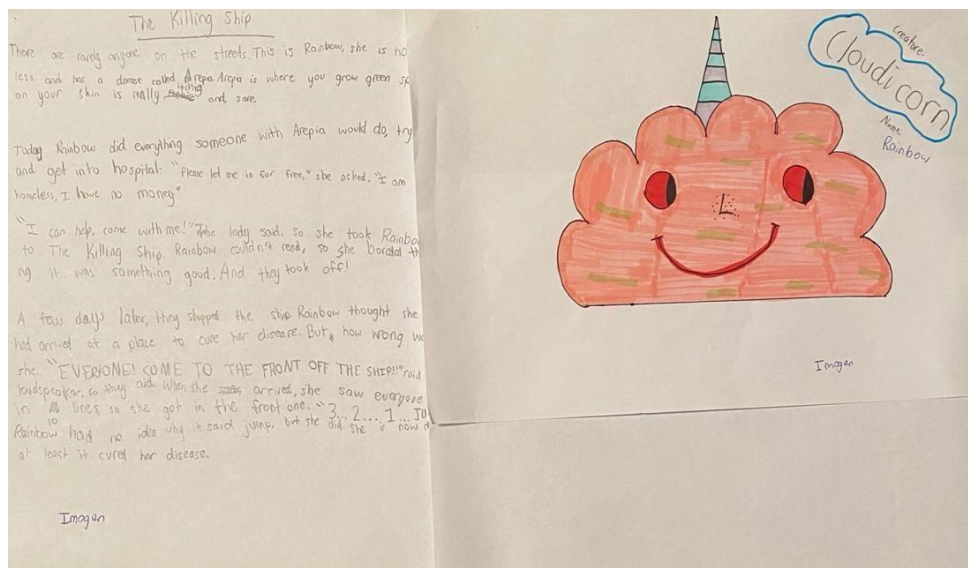 The Killing Ship
There are rarely anyone on the streets. This is Rainbow, she is ho
less and has a diease called Arepia Arepia is where you grow green sp
on your skin is really itching and sore.
Today Rainbow did everything someone with Arepia would do, try
and get into hospital. "Please let me in for free," she asked. "I am
homeless, I have no money"
"I can help, come with me!" The lady said. so she took Rainbo
to The Killing Ship. Rainbow couldn't read, so she borded th
ng it was something good. And they took off!
A few days later, they stopped the ship Rainbow thought she
had arrived at a place to cure her disease. But, how wrong w
she. "EVERYONE! COME TO THE FRONT OFF THE SHIP!!" said
loudspeaker. so they did. When she arrived, she saw everyone
in 10 lines so she got in the front one. "3... 2.... 1... JU
Rainbow had no idea why it said jump, but she did she is now d
at least it cured her disease.
Imogen
Creature:
Cloudicorn
Name:
Rainbow
Imogen